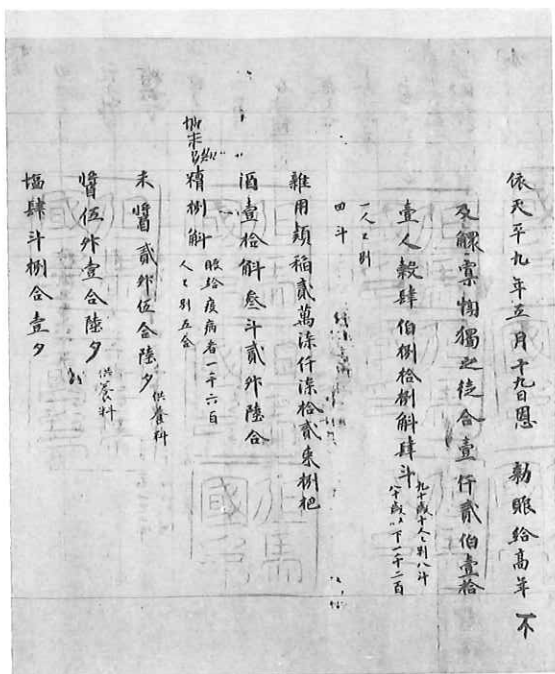 依天平九年五月十九日恩　勅賑給高年
及鰥寡惸獨之徒合壹仟貳伯壹拾
壹人穀肆伯捌拾捌斛肆斗
九十歳十人々別八斗
八十歳以下一千二百
一人々別
四斗
雜用穎稻貳萬漆仟漆拾貳束捌把
酒壹拾斛叁斗貳升陸合
糒捌斛
賑給疫病者一千六百
人々別五合
未醤貳升伍合陸夕
供養料
醤伍升壹合陸夕
供養料
塩肆斗捌合壹夕